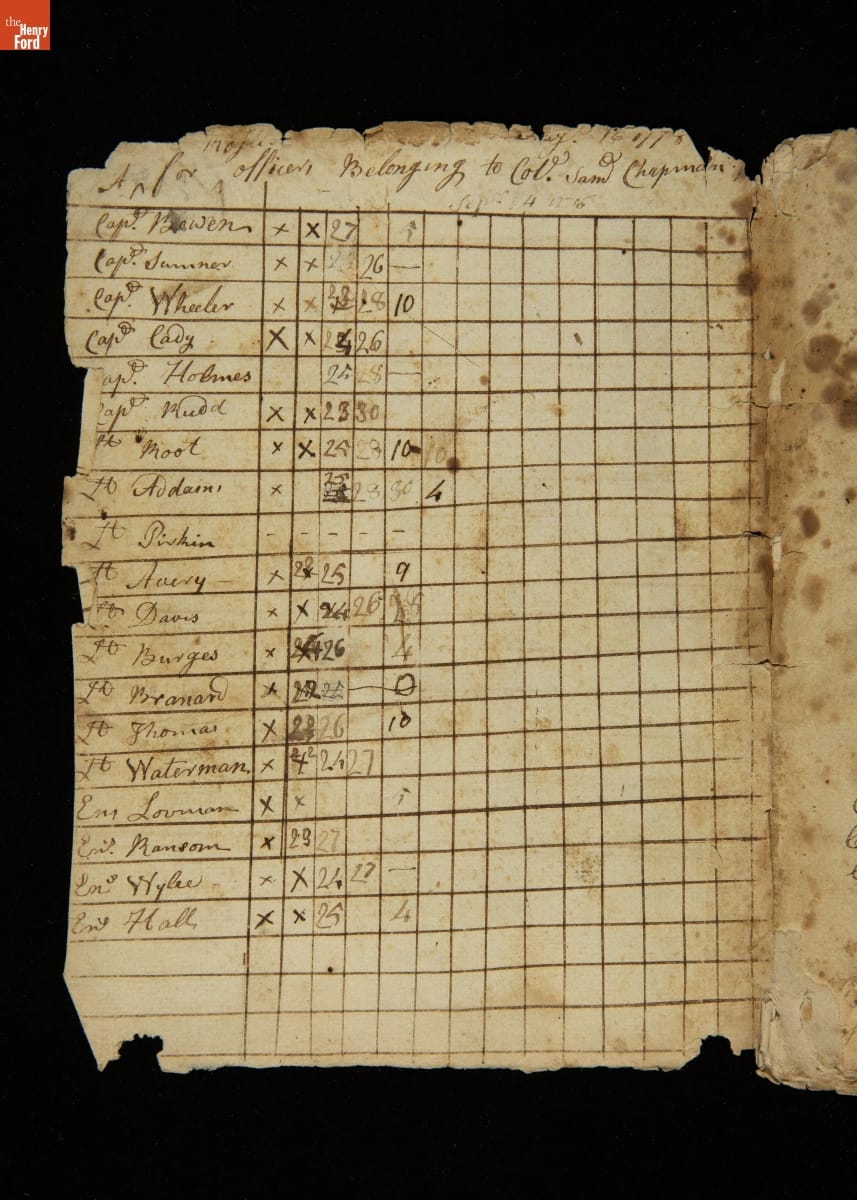 the
Henry
Ford
A for officers Belonging to Col. Sam Chapman
Capt. Bowen x x 27 5
Capt. Sumner x x 26 —
Capt. Wheeler x x 28 10
Capt. Cady x x 26
apt. Holmes 25 28 —
Capt. Rudd x x 23 30
Lt Root x x 25 28 10 10
Lt Addams x 25 28 30 4
Lt Pirkin - - - - -
Lt Avery — x 25 9
Lt Davis x x 24 26 28
Lt Burges x 26 4
Lt Branard x 22 — 0
Lt Thomas x 23 26 10
Lt Waterman x 24 27
Ens Lovman x x 5
Ens. Ransom x 23 27
Ens Wylee - x x 24 27 —
Ens Hall x x 25 4